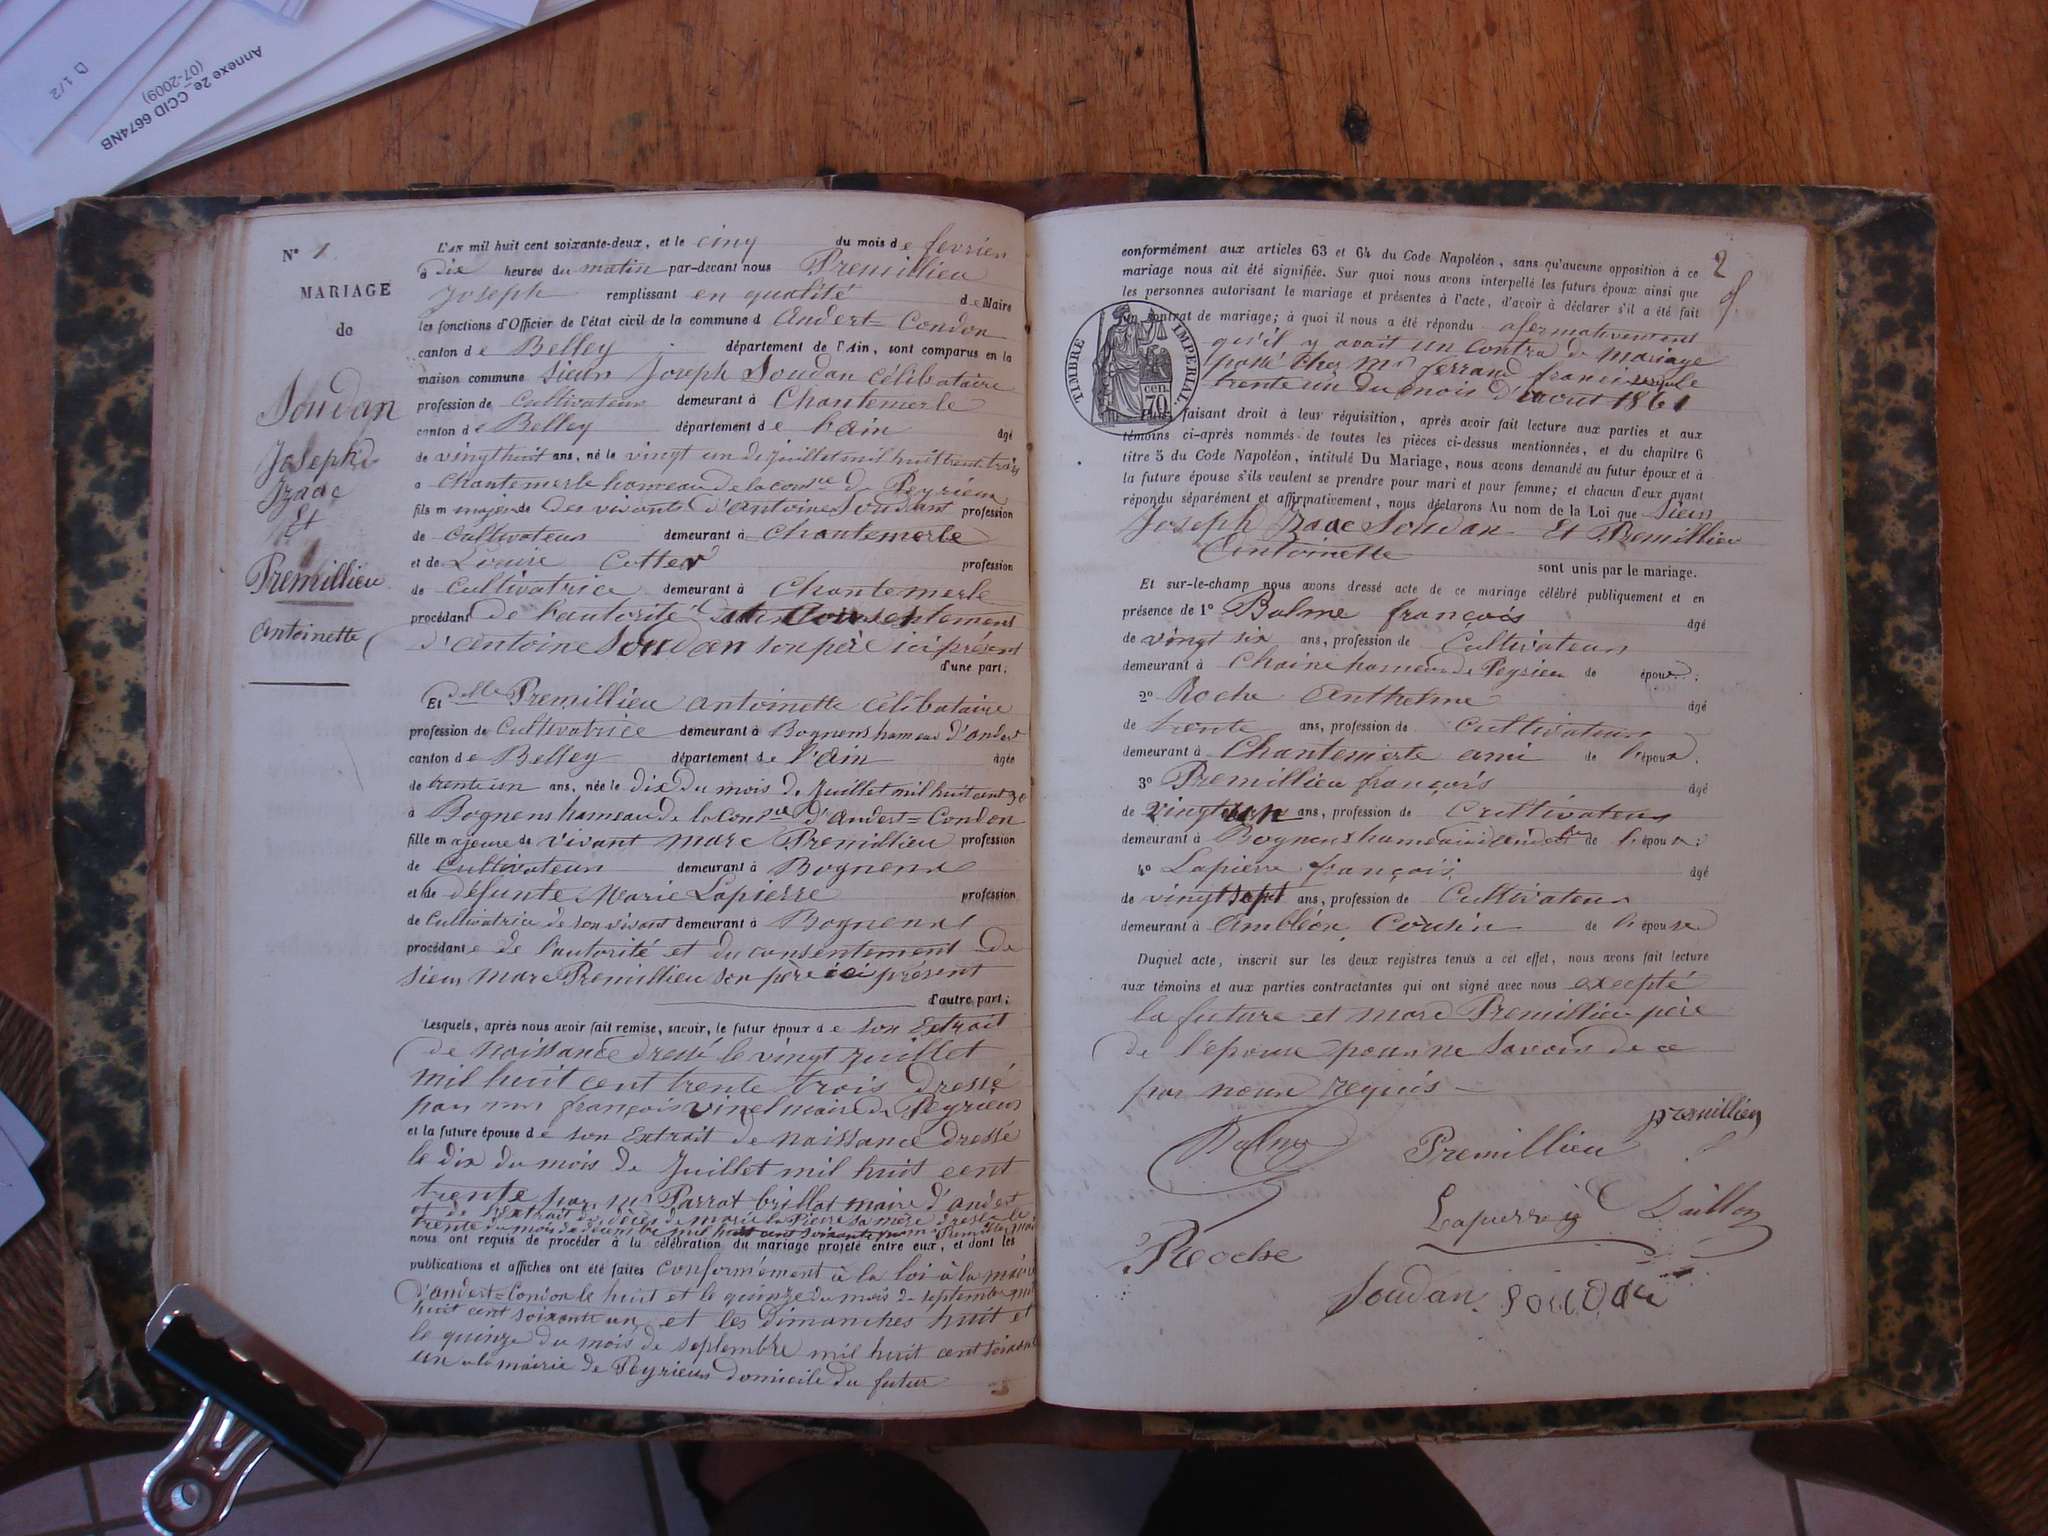 Annexe 2e_CCID 6674NB
(07-2009)
D 1/2
N° 1
MARIAGE
de
Soudan
Joseph
Izaac
Et
Premillieu
Antoinette
L'AN mil huit cent soixante-deux, et le cinq du mois de fevrier
à dix heures du matin par-devant nous Premillieu
Joseph remplissant en qualité de Maire
les fonctions d'Officier de l'état civil de la commune d Andert=Condon
canton de Belley département de l'Ain, sont comparus en la
maison commune sieur Joseph Soudan Célibataire
profession de Cultivateur demeurant à Chantemerle
canton de Belley département de l'ain âgé
de vingthuit ans, né le vingt un de juillet mil huit trente trois
à Chantemerle hameau de la comne de Peyrieu
fils majeur de des vivants d'antoine Soudant profession
de Cultivateur demeurant à Chantemerle
et de Louise Cotter profession
de Cultivatrice demeurant à Chantemerle
procédant de l'autorité consentement
d'antoine Soudan son père ici présent
d'une part.
Et delle Premillieu antoinette Célibataire
profession de Cultivatrice demeurant à Bognens hameau d'andert
canton de Belley département de l'Ain âgée
de trente un ans, née le dix du mois de Juillet mil huit cent 30
à Bognens hameau de la Comne d'Andert=Condon
fille majeure de vivant marc Premillieu profession
de Cultivateur demeurant à Bognens
et de défunte Marie Lapierre profession
de Cultivatrice de son vivant demeurant à Bognens
procédante de l'autorité et du consentement de
sieur marc Premillieu son père ici présent
d'autre part;
Lesquels, après nous avoir fait remise, savoir, le futur époux de son Extrait
de naissance dressé le vingt juillet
mil huit cent trente trois dressé
par mr françois vinel maire de Peyrieu
et la future épouse de son Extrait de naissance dressé
le dix du mois de Juillet mil huit cent
trente par mr Parrat brillat maire d'andert
et de l'extrait de décès de marie la Pierre sa mère dressé le
trente du mois de mil huit cent soixante
nous ont requis de procéder à la célébration du mariage projeté entre eux, et dont les
publications et affiches ont été faites conformément à la loi à la mairie
d'andert=Condon le huit et le quinze du mois de septembre mil
huit cent soixante un et les dimanches huit et
le quinze du mois de septembre mil huit cent soixante
un a la mairie de Peyrieu domicile du futur
2
conformément aux articles 63 et 64 du Code Napoléon, sans qu'aucune opposition à ce
mariage nous ait été signifiée. Sur quoi nous avons interpellé les futurs époux ainsi que
les personnes autorisant le mariage et présentes à l'acte, d'avoir à déclarer s'il a été fait
un contrat de mariage; à quoi il nous a été répondu afermativement
qu'il y avait un contra de mariage
passé chez mr ferrand le
trente un du mois d'aout 1861
TIMBRE IMPÉRIAL
70 cen.
faisant droit à leur réquisition, après avoir fait lecture aux parties et aux
témoins ci-après nommés de toutes les pièces ci-dessus mentionnées, et du chapitre 6
titre 5 du Code Napoléon, intitulé Du Mariage, nous avons demandé au futur époux et à
la future épouse s'ils veulent se prendre pour mari et pour femme; et chacun d'eux ayant
répondu séparément et affirmativement, nous déclarons Au nom de la Loi que Sieur
Joseph Izaac Soudan Et Premillieu
Antoinette
sont unis par le mariage.
Et sur-le-champ nous avons dressé acte de ce mariage célébré publiquement et en
présence de 1° Balme françois âgé
de vingt six ans, profession de Cultivateur
demeurant à hameau de Peyrieu de époux;
2° Roche Anthelme âgé
de trente ans, profession de cultivateur
demeurant à Chantemerle ami de l'époux;
3° Premillieu françois âgé
de vingt un ans, profession de Cultivateur
demeurant à Bognens hameau de l'épouse;
4° Lapierre françois âgé
de vingt sept ans, profession de Cultivateur
demeurant à Ambléon Cousin de l'épouse
Duquel acte, inscrit sur les deux registres tenus à cet effet, nous avons fait lecture
aux témoins et aux parties contractantes qui ont signé avec nous excepté
la future et marc Premillieu père
de l'epouse pour ne savoir de ce
par nous requis
premillieu
Balme Premillieu
Lapierre
Roche
Soudan Soudan